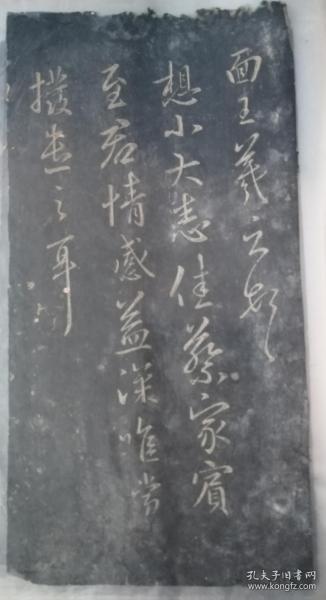 面王羲之頓
想小大悉佳蔡家賓
至君情感益深唯當
撥遣之耳
孔夫子旧书网
www.kongfz.com